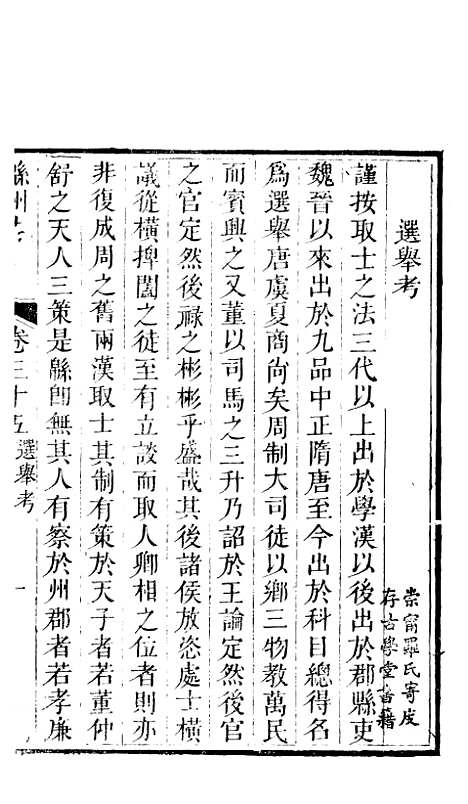 選舉考
崇甯羅氏寄度
存古學堂書籍
謹按取士之法三代以上出於學漢以後出於郡縣吏
魏晉以來出於九品中正隋唐至今出於科目總得名
為選舉唐虞夏商尚矣周制大司徒以鄉三物教萬民
而賓興之又董以司馬之三升乃詔於王論定然後官
之官定然後祿之彬彬乎盛哉其後諸侯放恣處士橫
議從橫捭闔之徒至有立談而取人卿相之位者則亦
非復成周之舊兩漢取士其制有策於天子者若董仲
舒之天人三策是緜卽無其人有察於州郡者若孝廉
緜州 卷三十五 選舉考 一